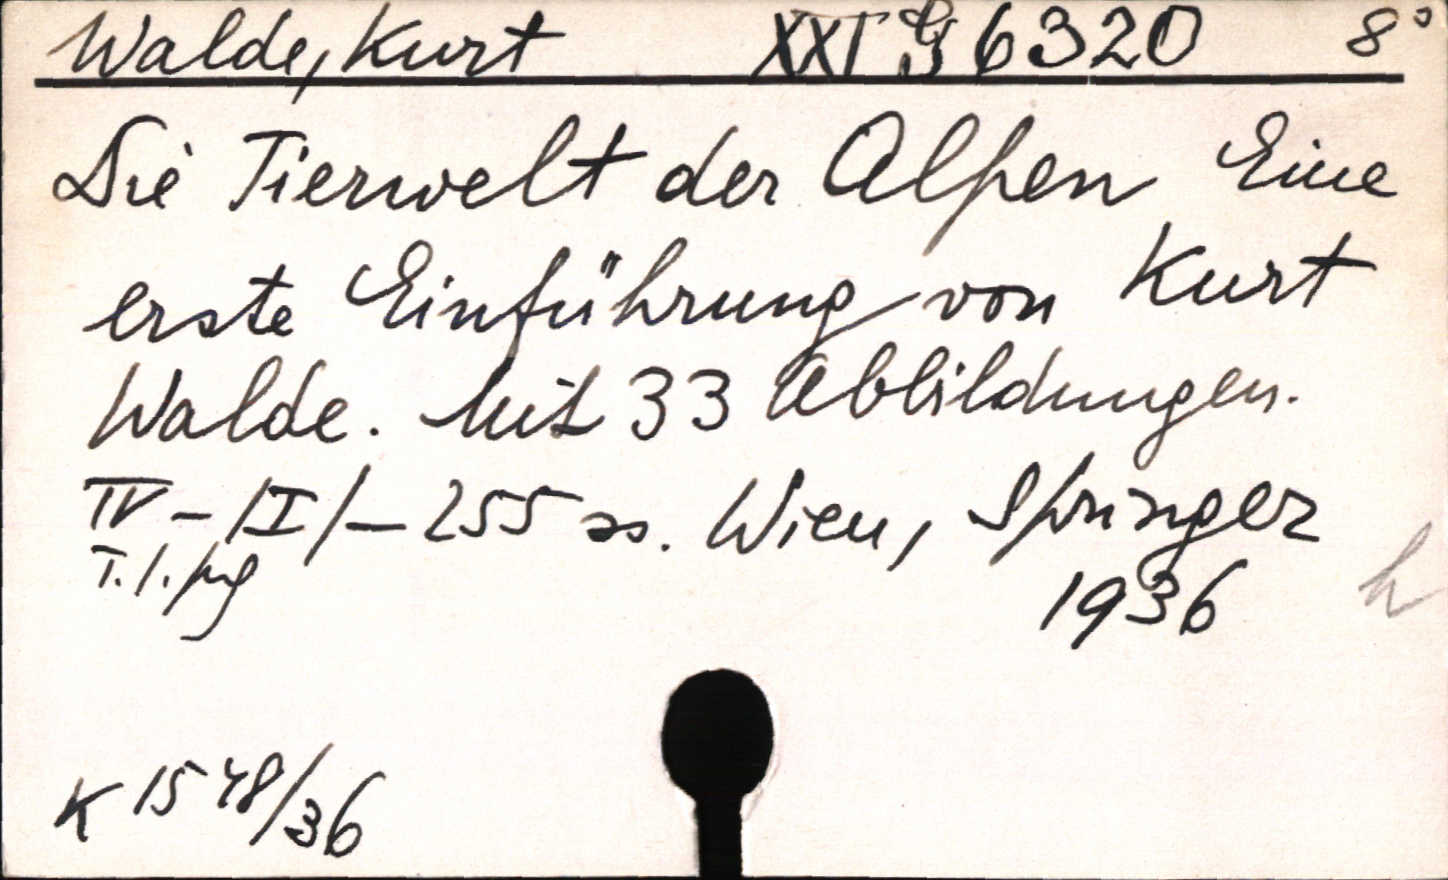 Walde, Kurt XXI G 6320 8°
Die Tierwelt der Alpen Eine
erste Einführung von Kurt
Walde. Mit 33 Abbildungen.
IV - |I| - 255 ss. Wien, Springer
1936
K 1548/36